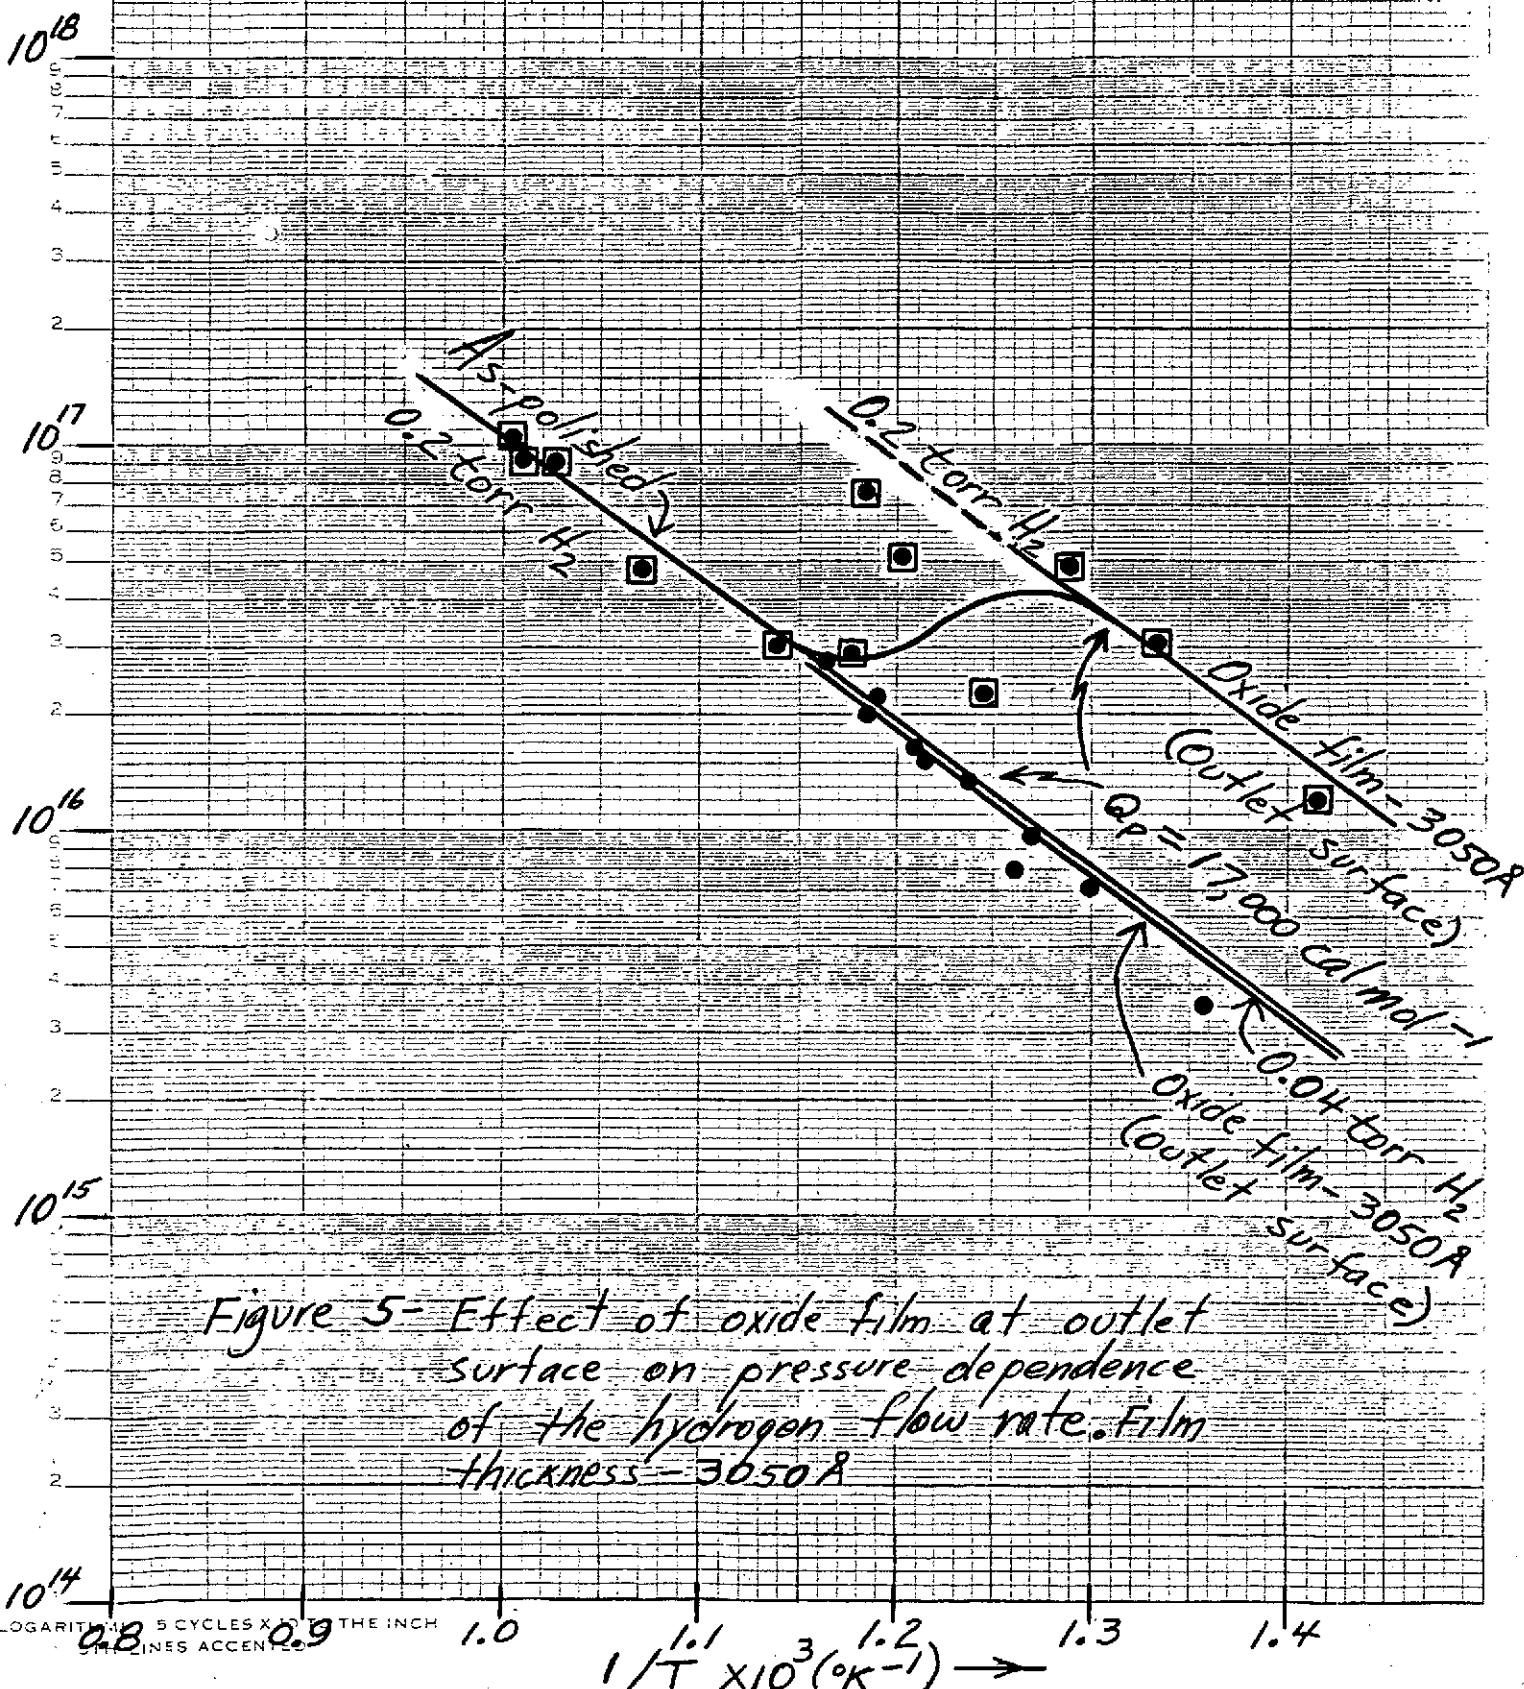 10^18
9
8
7
6
5
4
3
2
10^17
9
8
7
6
5
4
3
2
10^16
9
8
7
6
5
4
3
2
10^15
3
2
10^14
As-polished
0.2 torr H2
0.2 torr H2
Oxide film-3050Å
(Outlet surface)
Qp = 17,000 cal mol-1
0.04 torr H2
Oxide film-3050Å
(Outlet surface)
Figure 5- Effect of oxide film at outlet
surface on pressure dependence
of the hydrogen flow rate. Film
thickness - 3050Å
0.8 0.9 1.0 1.1 1.2 1.3 1.4
5 CYCLES X TO THE INCH
LINES ACCENTED
1/T x10^3 (°K-1) →